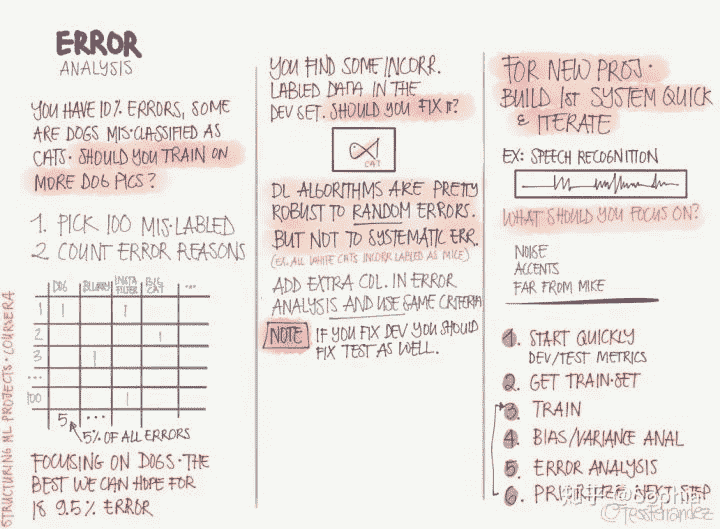 ERROR
ANALYSIS
YOU HAVE 10% ERRORS, SOME
ARE DOGS MIS-CLASSIFIED AS
CATS. SHOULD YOU TRAIN ON
MORE DOG PICS?
1. PICK 100 MIS-LABLED
2. COUNT ERROR REASONS
DOG BLURRY INSTA FILTER BIG CAT ...
1 | |
2 |
3 |
...
100 |
5 ...
5% OF ALL ERRORS
FOCUSING ON DOGS. THE
BEST WE CAN HOPE FOR
IS 9.5% ERROR
STRUCTURING ML PROJECTS. COURSERA
YOU FIND SOME INCORR.
LABLED DATA IN THE
DEV SET. SHOULD YOU FIX IT?
CAT
DL ALGORITHMS ARE PRETTY
ROBUST TO RANDOM ERRORS.
BUT NOT TO SYSTEMATIC ERR.
(EX. ALL WHITE CATS INCORR LABLED AS MICE)
ADD EXTRA COL. IN ERROR
ANALYSIS AND USE SAME CRITERIA
NOTE IF YOU FIX DEV YOU SHOULD
FIX TEST AS WELL.
FOR NEW PROJ.
BUILD 1st SYSTEM QUICK
& ITERATE
EX: SPEECH RECOGNITION
WHAT SHOULD YOU FOCUS ON?
NOISE
ACCENTS
FAR FROM MIKE
1. START QUICKLY
DEV/TEST METRICS
2. GET TRAIN-SET
3. TRAIN
4. BIAS/VARIANCE ANAL
5. ERROR ANALYSIS
6. PRIORITIZE NEXT STEP
知乎 @Sophia
@TessFernandez